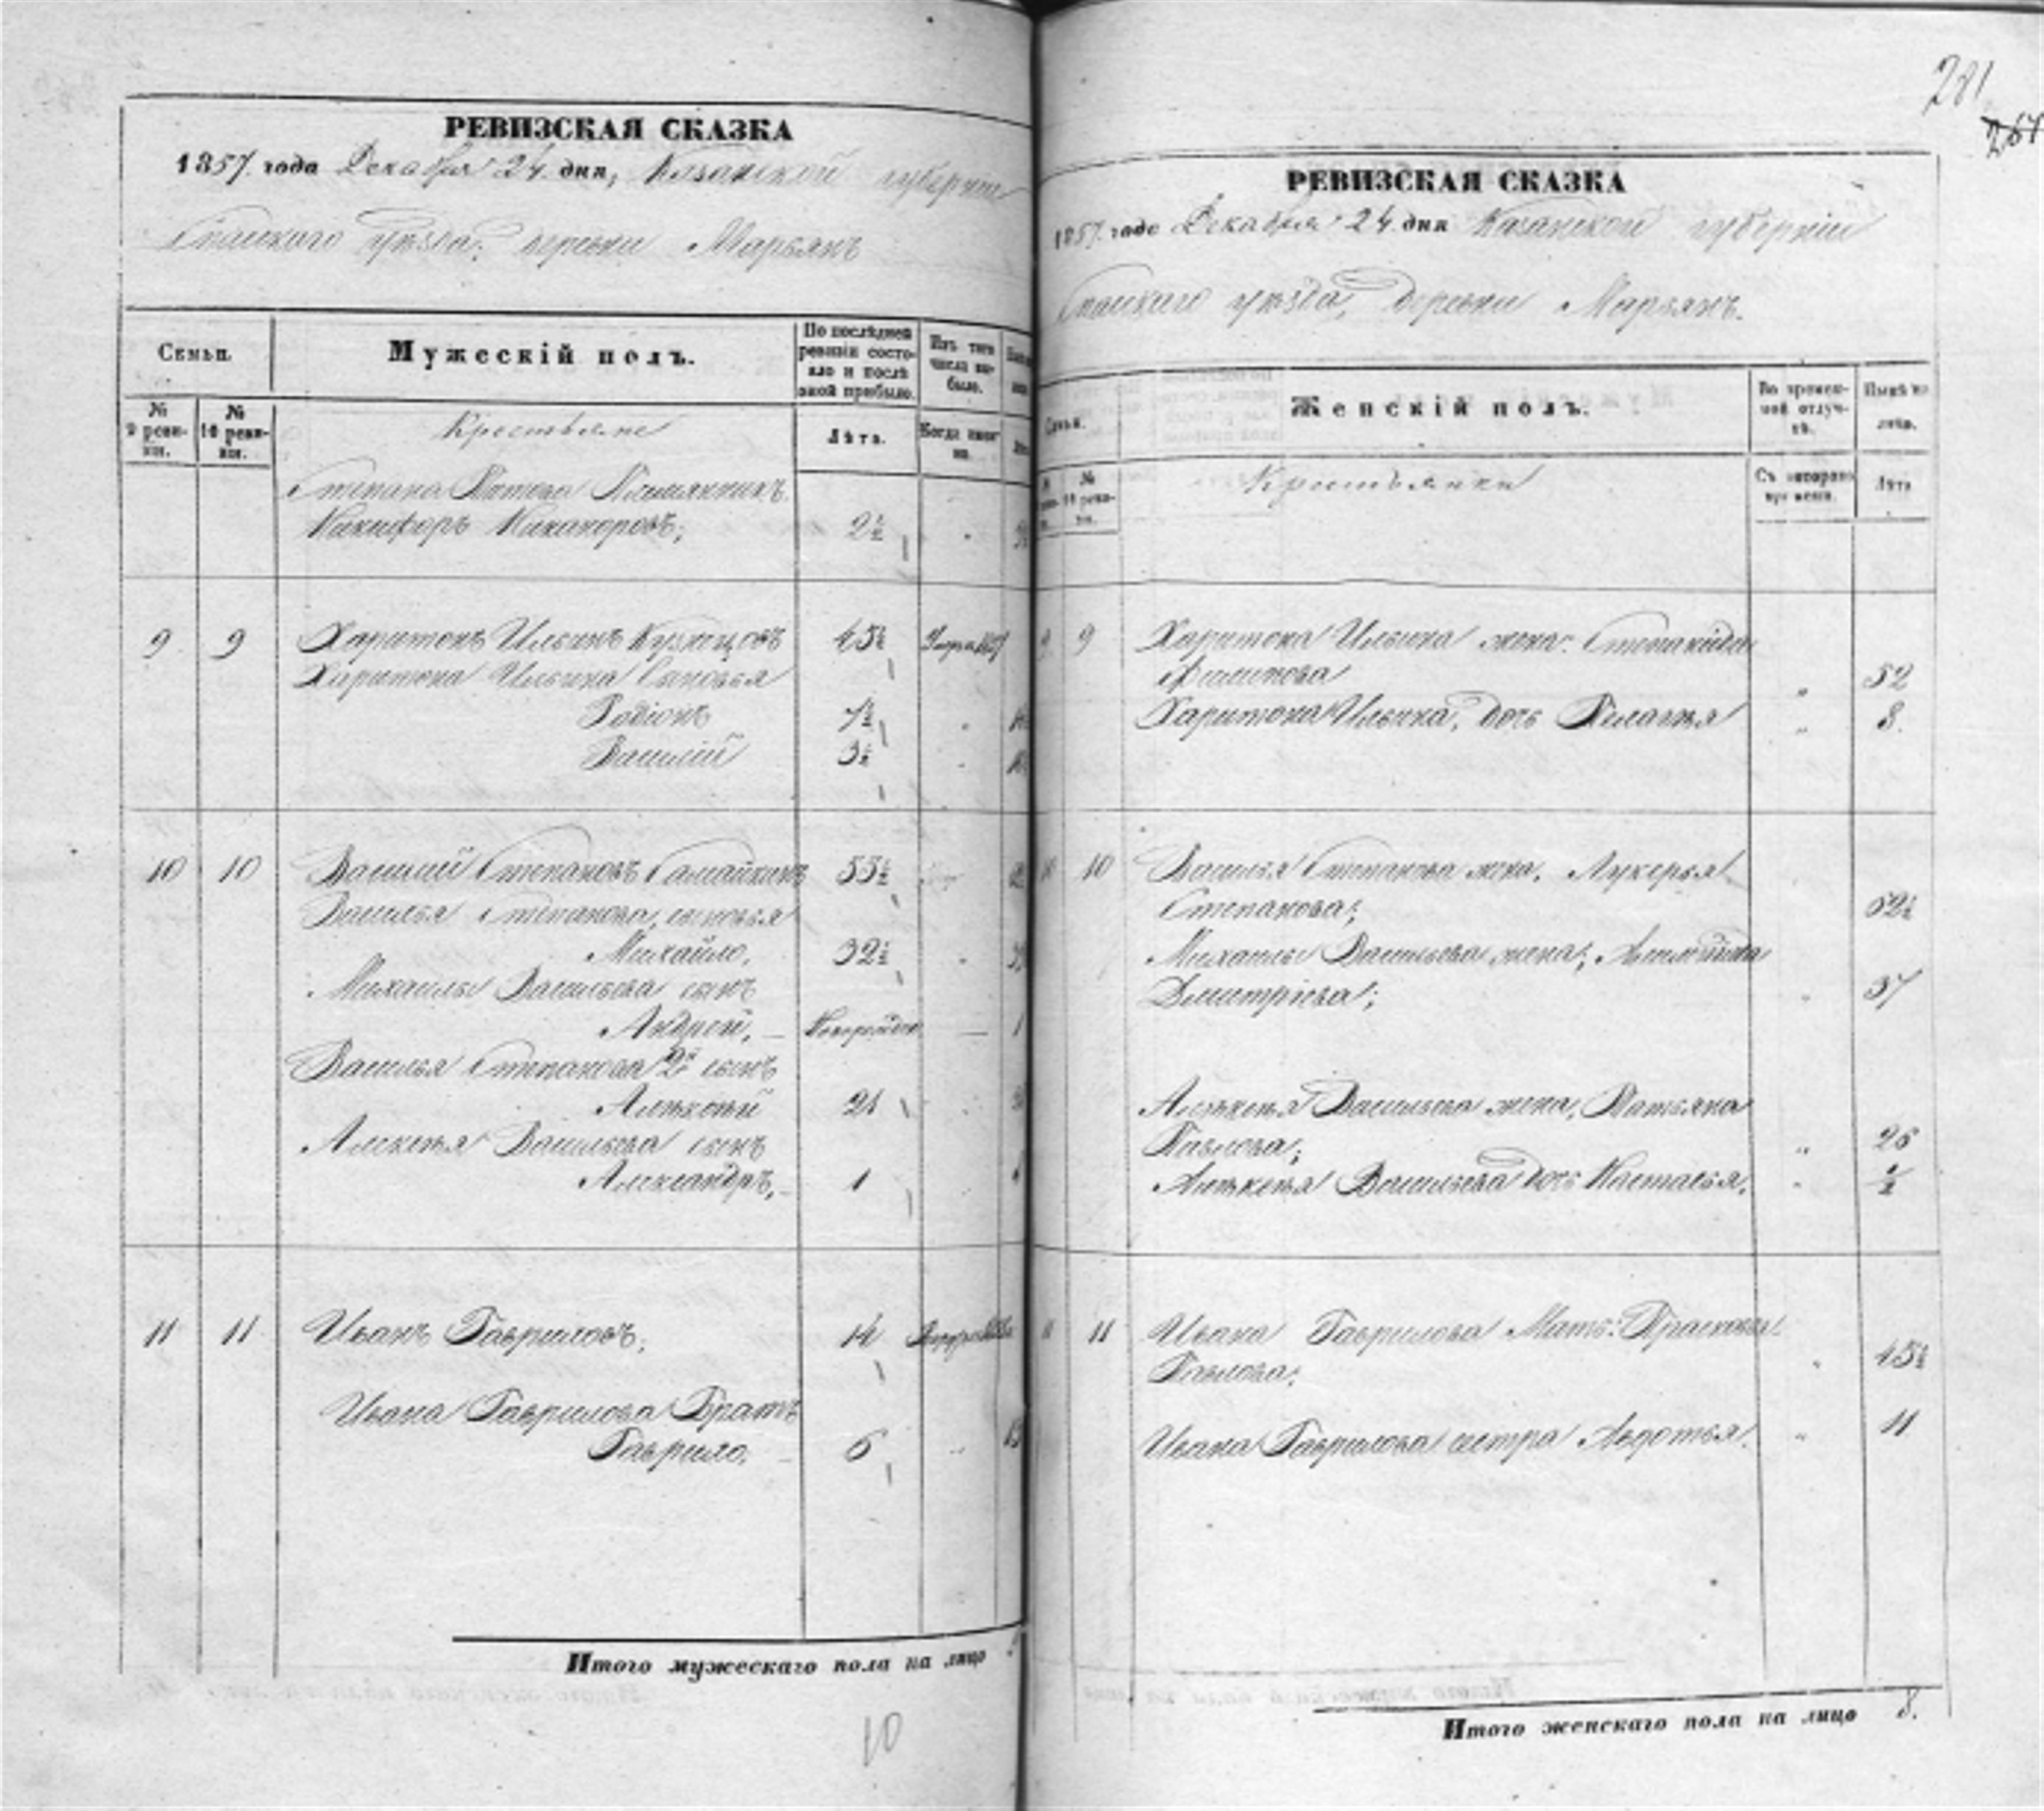 РЕВИЗСКАЯ СКАЗКА
1857 года Декабря 24 дня, Казанской губерніи
Спаскаго уѣзда, деревни Марьянъ
Семьи.
Мужескій полъ.
По послѣдней ревизіи состояло и послѣ оной прибыло.
Изъ того числа выбыло.
№ 9 ревизіи.
№ 10 ревизіи.
Крестьяне
Лѣта.
Когда именно.
Степана
Никифоръ Никаноровъ; 2½
9 9 Харитонъ Ильинъ Кузнецовъ 45½
Харитона Ильина Сыновья
Родіонъ 7½
Василій 3½
10 10 Василій Степановъ Самайкинъ 55½
Василья Степанова, сыновья
Михайло, 32½
Михайлы Васильева сынъ
Андрей, —
Василья Степанова 2й сынъ
Алексѣй 21
Алексѣя Васильева сынъ
Александръ, 1
11 11 Иванъ Гавриловъ; 14
Ивана Гаврилова Братъ
Гаврило, 6
Итого мужескаго пола на лицо
10
281
264
РЕВИЗСКАЯ СКАЗКА
1857 года Декабря 24 дня Казанской губерніи
Спаскаго уѣзда, деревни Марьянъ.
Семьи.
Женскій полъ.
Во временной отлучкѣ.
Нынѣ на лицо.
№ 10 ревизіи.
Крестьянки
Съ котораго времени.
Лѣта
9 9 Харитона Ильина жена: Степанида
Филипова 52
Харитона Ильина, дочь Пелагѣя 8.
10 10 Василья Степанова жена, Лукерья
Степанова; 52½
Михайлы Васильева жена;
Дмитріева; 37
Алексѣя Васильева жена, Татьяна
Павлова; 26
Алексѣя Васильева дочь Настасья. ½
11 11 Ивана Гаврилова Мать: Прасковья
Павлова; 45½
Ивана Гаврилова сестра Авдотья. 11
Итого женскаго пола на лицо 8.